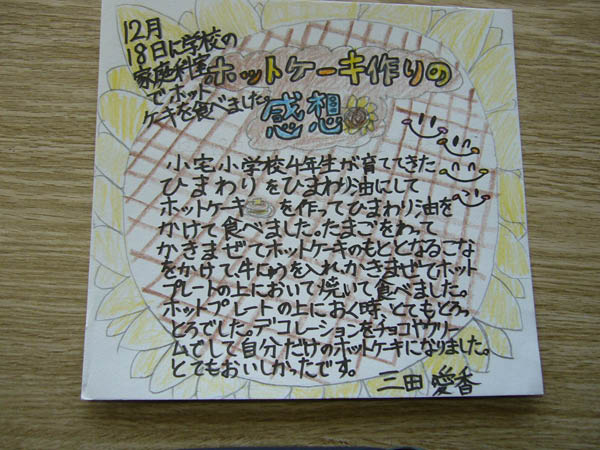 12月
18日に学校の
家庭科室
でホット
ケーキを食べました。
ホットケーキ作りの
感想
小宅小学校4年生が育ててきた
ひまわりをひまわり油にして
ホットケーキを作ってひまわり油を
かけて食べました。たまごをわって
かきまぜてホットケーキのもととなるこな
をかけて、牛にゅうを入れ、かきまぜてホット
プレートの上において焼いて食べました。
ホットプレートの上におく時、とてもとろっ
とろでした。デコレーションをチョコやクリー
ムでして自分だけのホットケキになりました。
とてもおいしかったです。
三田 愛香